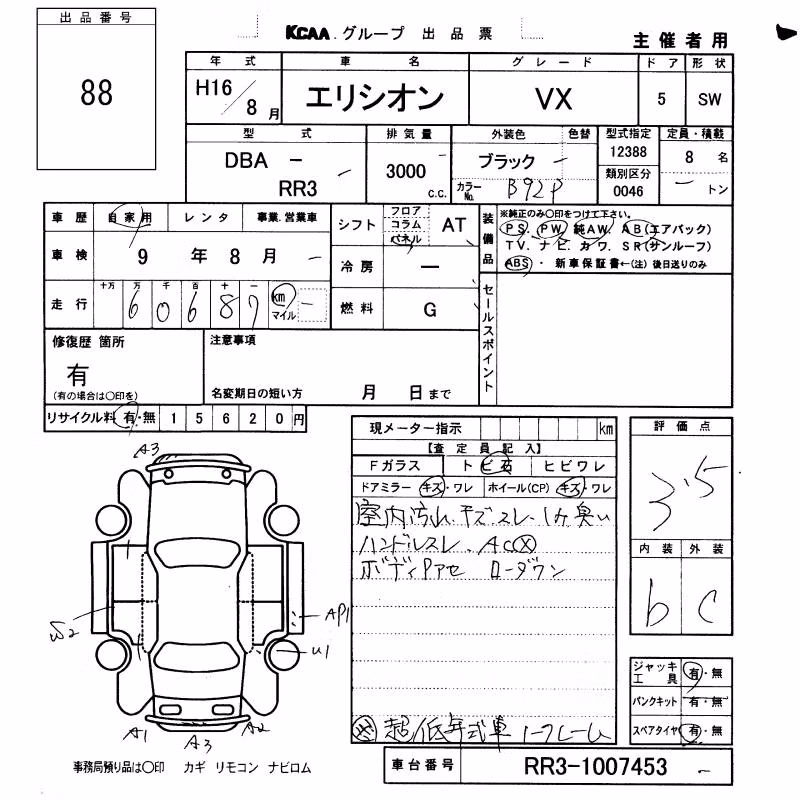 出品番号
88
KCAA グループ 出品票
主催者用
年式 車名 グレード ドア 形状
H16/8月 エリシオン VX 5 SW
型式 排気量 外装色 色替 型式指定 定員・積載
DBA - RR3 3000 c.c. ブラック カラーNo. B92P 12388 8 名
類別区分 0046 トン
車歴 自家用 レンタ 事業.営業車
シフト フロア コラム パネル AT
装備品 ※純正のみ〇印をつけて下さい。
PS, PW, 純AW, AB(エアバック)
TV. ナビ. カワ. SR(サンルーフ)
ABS ・ 新車保証書←(注) 後日送りのみ
車検 9 年 8 月
冷房 ー
走行 十万 万 千 百 十 一
6 0 6 8 7 km マイル
燃料 G
セールスポイント
修復歴 箇所
有
(有の場合は〇印を)
注意事項
名変期日の短い方 月 日まで
リサイクル料 有・無 1 5 6 2 0 円
現メーター指示 km
【査定員記入】
Fガラス トビ石 ヒビワレ
ドアミラー キズ・ワレ ホイール(CP) キズ・ワレ
室内汚れ.キズスレ.
ハンドルスレ. AC
ボディPアセ ローダウン
超低年式車 ノークレーム
評価点
3.5
内装 外装
b C
ジャッキ工具 有・無
パンクキット 有・無
スペアタイヤ 有・無
A3
W2
AP1
U1
A1
A3
A2
事務局預り品は〇印 カギ リモコン ナビロム
車台番号 RR3-1007453